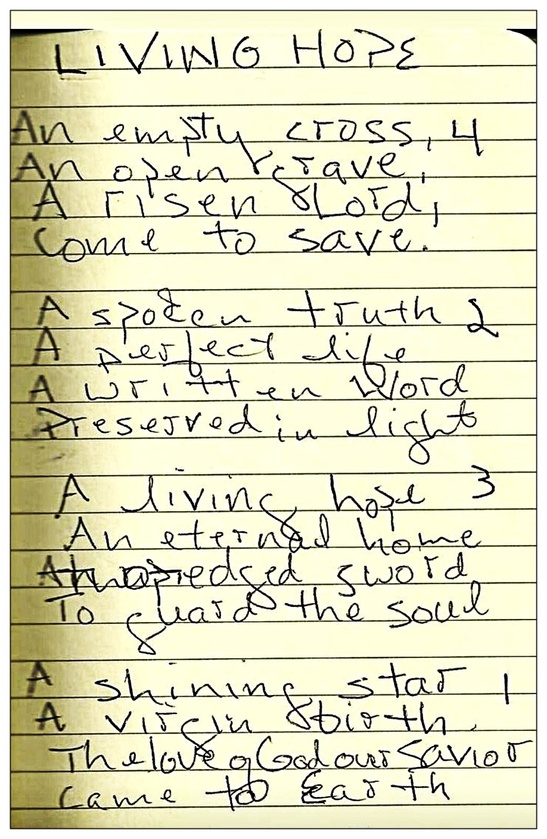 LIVING HOPE
An empty cross, 4
An open grave,
A risen Lord,
Come to save.
A spoken truth 2
A perfect life
A written Word
Preserved in light
A living hope 3
An eternal home
A edged sword
To guard the soul
A shining star 1
A virgin birth
The love of God our Savior
Came to Earth